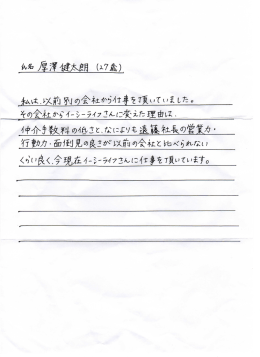 氏名 厚澤 健太朗 (27歳)
私は、以前別の会社から仕事を頂いていました。
その会社からイーシーライフさんに変えた理由は、
仲介手数料の低さと、なによりも遠藤社長の営業力・
行動力・面倒見の良さが以前の会社と比べられない
くらい良く、今現在イーシーライフさんに仕事を頂いています。